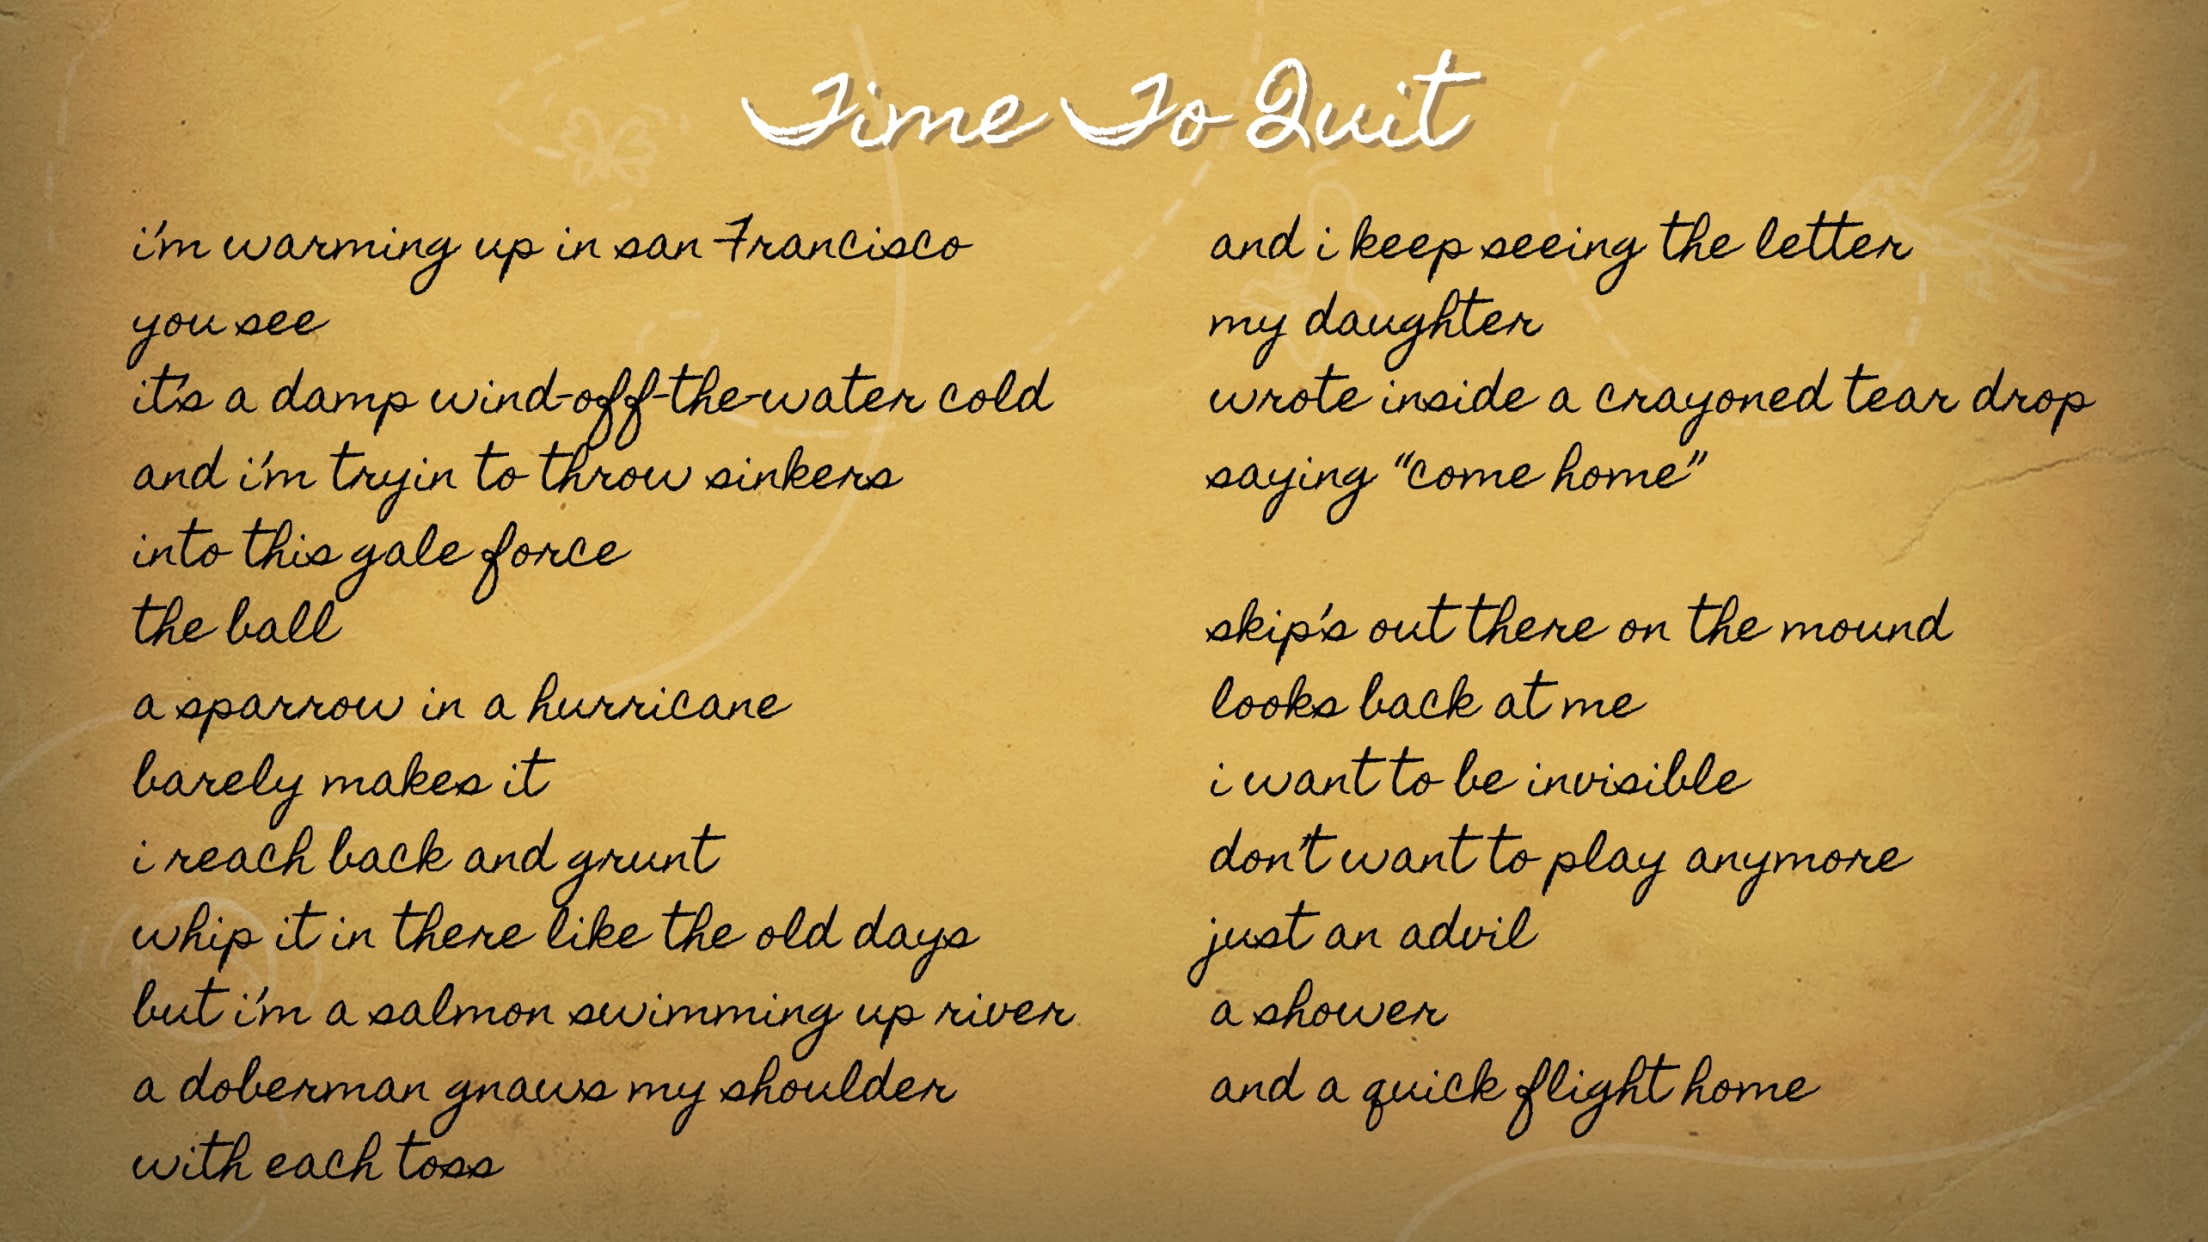 Time To Quit
i'm warming up in san Francisco
you see
it's a damp wind-off-the-water cold
and i'm tryin to throw sinkers
into this gale force
the ball
a sparrow in a hurricane
barely makes it
i reach back and grunt
whip it in there like the old days
but i'm a salmon swimming up river
a doberman gnaws my shoulder
with each toss
and i keep seeing the letter
my daughter
wrote inside a crayoned tear drop
saying “come home”
skip's out there on the mound
looks back at me
i want to be invisible
don't want to play anymore
just an advil
a shower
and a quick flight home